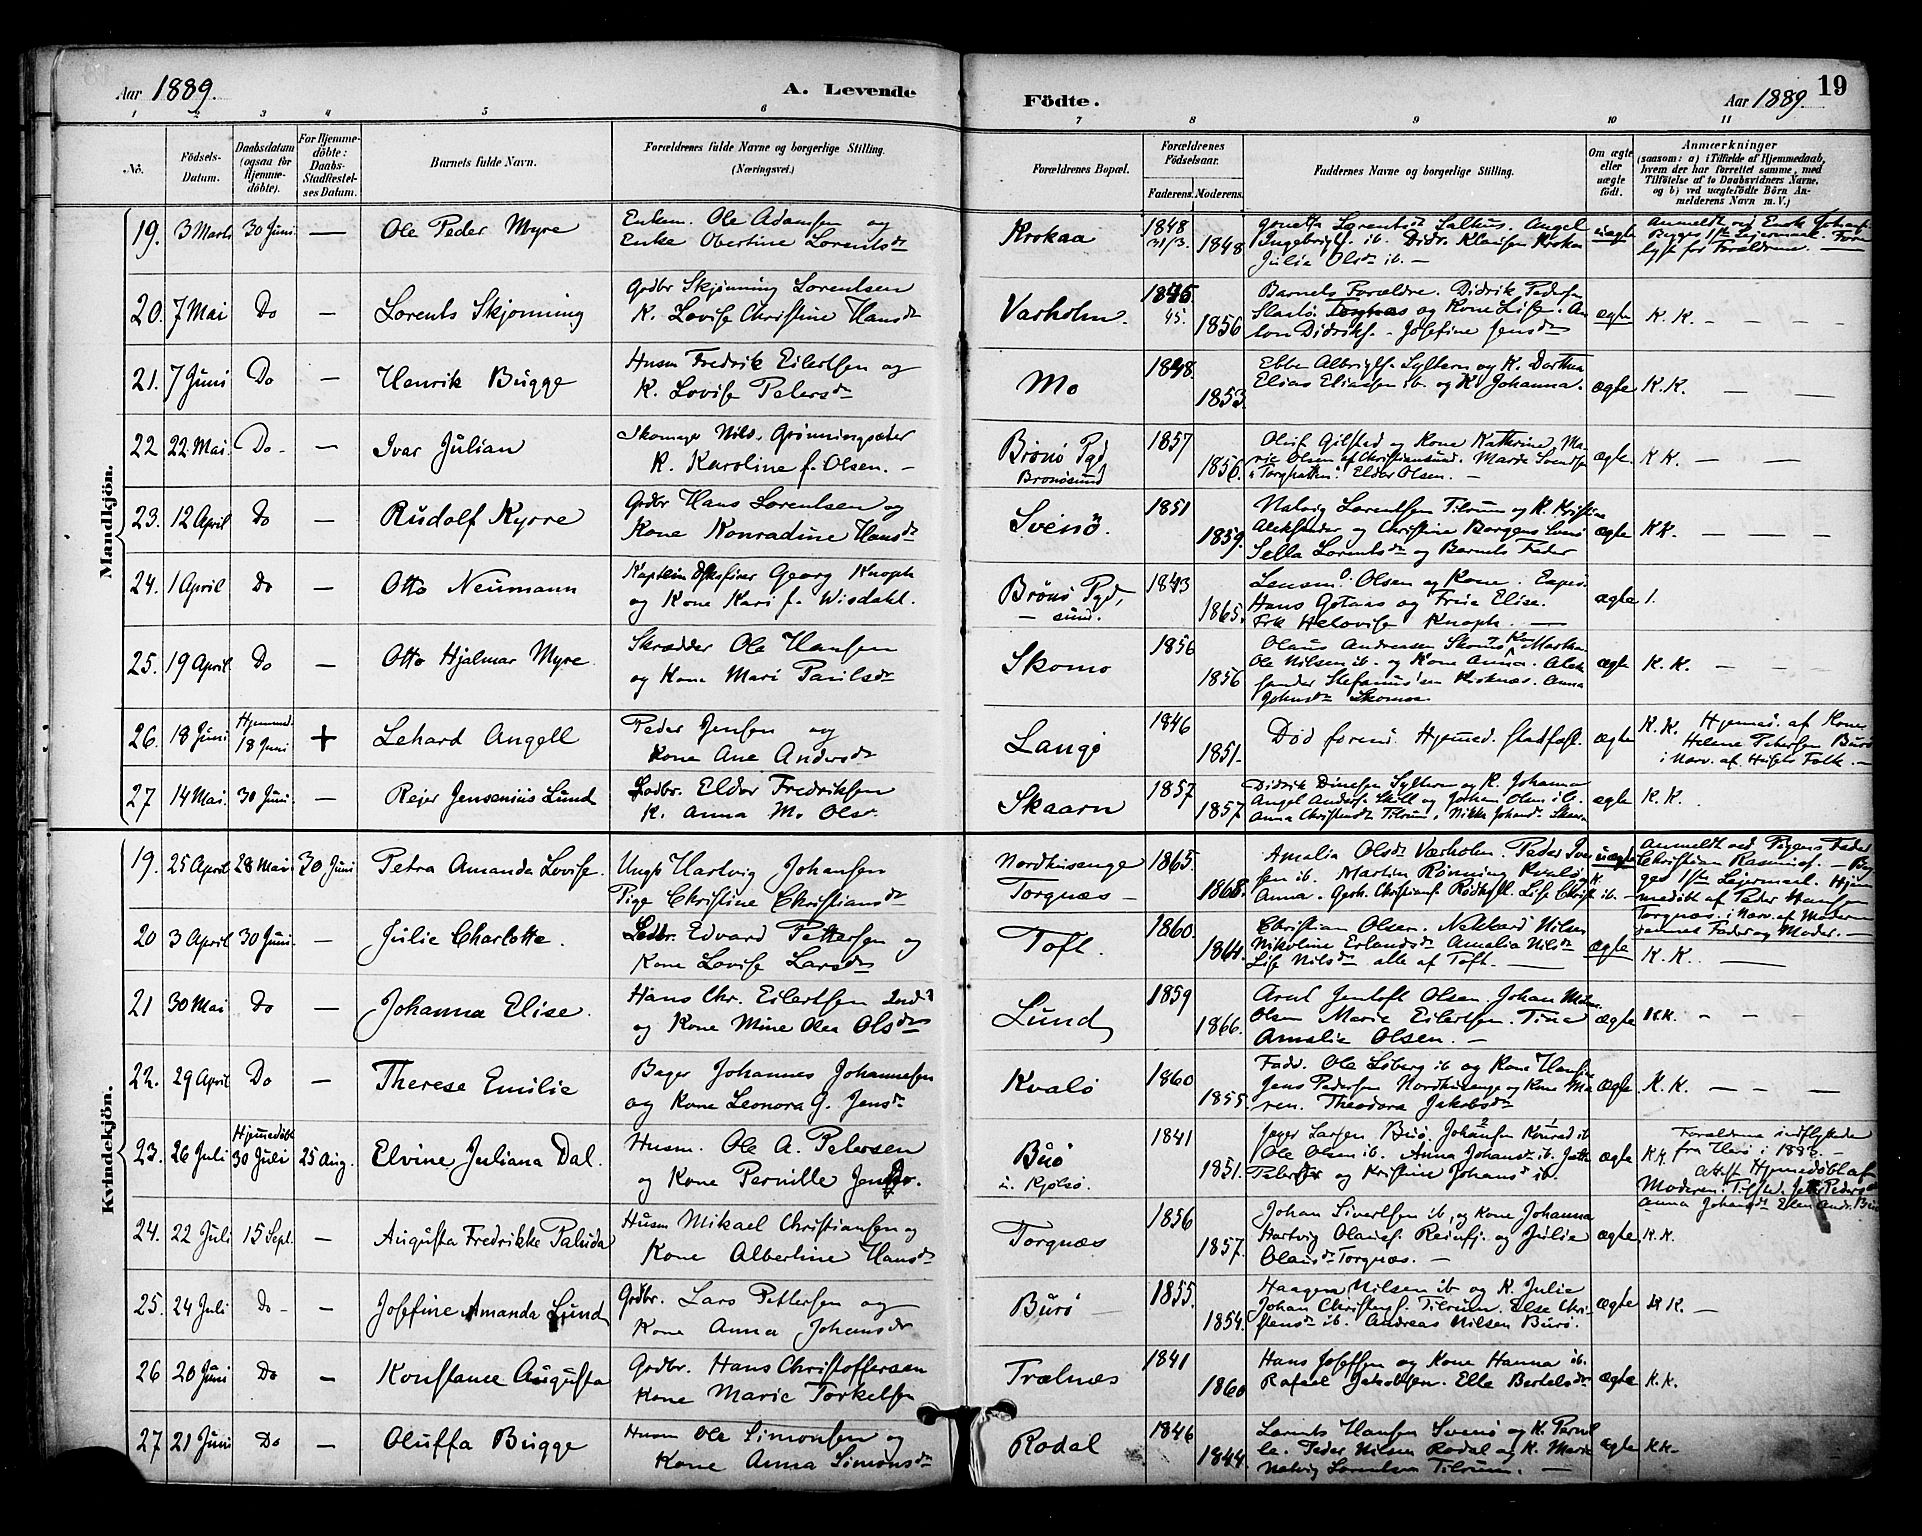 Aar 1889.
A. Levende
Födte.
Aar 1889.
19
1 2 3 4 5 6 7 8 9 10 11
No.
Födsels-
Datum.
Daabsdatum
(ogsaa för
Hjemme-
döbte).
For Hjemme-
döbte:
Daabs-
Stadfæstel-
ses Datum.
Barnets fulde Navn.
Forældrenes fulde Navne og borgerlige Stilling.
(Næringsvei.)
Forældrenes Bopæl.
Forældrenes
Födselsaar.
Faderens. Moderens.
Faddernes Navne og borgerlige Stilling.
Om ægte
eller
uægte
födt.
Anmærkninger
(saasom: a) i Tilfælde af Hjemmedaab,
hvem der har forrettet samme, med
Tilföielse af to Daabsvidners Navne,
og b) ved uægtefödte Börn An-
melderens Navn m. V.)
Mandkjön.
19. 3 Marts 30 Juni — Ole Peder Myre
Enkem. Ole Adamsen og
Enke Obertine Lorentsdr
Krokaa 1848 31/3. 1848
Ingebrigts. ib. Didr. Klausen Krokaa
Julie Olsdr ib. —
uægte
20. 7 Mai Do — Lorents Skjønning
Grdbr Skjønning Lorentsen
K. Lovise Christine Hansdr
Varholm. 45. 1856
Barnets Forældre. Didrik Pedersen
Torgnæs og Kone Lise. An-
ton Didriks. - Josefine Jensdr
ægte K. K. — — —
21. 7 Juni Do — Henrik Bugge
Husm Fredrik Eilertsen og
K. Lovise Petersdr
Mo 1848. 1853.
Ebbe Albrigts. Sylthern og K. Dorthea
Elias Eliassen ib. og K. Johanna.
ægte K. K. — —
22 22 Mai. Do - — Ivar Julian
Skomager Nils Grönningsæter
K. Karoline f. Olsen. —
Brönö Pgd
Brönösund 1857 1856.
Oluf Gilstad og Kone Kathrine, Ma-
rie Olsen af Christiansund. Marde Svendsen
Torghatten. Eldor Olsen. —
ægte. K K. — —
23. 12 April Do — Rudolf Kyrre
Grdbr Hans Lorentsen og
Kone Konradine Hansdr
Svinö. 1851 1859.
Natvig Lorentsen Tilrum og K. Kristine
Aleksander og Christine Borgens
Sella Lorentsdr og Barnets Fader
ægte KK. — — —
24. 1 April Do — Otto Neumann
Georg Knoph
og Kone Kari f. Wisdahl.
Brönö Pgd,
— sund. 1843 1865.
Lensm. Olsen og Kone.
Hans Gotaas og Frue Elise.
Frk Helovise Knoph. —
ægte 1.
25. 19 April Do — Otto Hjalmar Myre
Skrædder Ole Hansen
og Kone Mari Paulsdr
Skomo 1856 1856
Olaus Andreasen
Ole Nilsen ib. og Kone Anna.
sander Stefanussen Anna
Johnsdr Skomoe
ægte K. K. — — —
26. 18 Juni Hjemmed. 18 Juni + Lehard Angell
Peder Jensen og
Kone Ane Andersdr
Langö 1846 1851.
Död forend Hjemmed. stadfæst.
ægte K. K. Hjemmed. af Kone
Helene Petersen Burö
i Nærv. af Husets Folk. —
27 14 Mai. 30 Juni. — Reier Jensenius Lund
Ledbr. Eldor Fredriksen
K. Anna M. Olsdr.
Skaarn 1857 1857
Didrik Dinesen Sylthern og K. Johanna
Angel Anders. Skill og Johan Olsen ib.
Anna Christensdr Tilrum, Nikka Johansdr Skaarn
ægte K. K.
Kvindekjön.
19. 25 April 28 Mai 30 Juni Petra Amanda Lovise.
Ungk Hartvig Johansen
Pige Christine Christiansdr
Nordhusenge
Torgnæs — 1865. 1868.
Amalia Olsdr Værholm. Peder Iver-
sen ib. Martin Rönning Kvalö
Anna. Gerh. Christians. Rödhoft. Lise Christ. ib. —
uægte
Anmeldt ved Pigens Fader
Christian Rasmus. — Beg-
ges 1ste Leiermaal. Hjem-
medöbt af Peder Hansen
Torgnæs. i Nærv. af Moderen
dennes Fader og Moder. —
20 3 April 30 Juni. — Julie Charlotte.
Ledbr. Edvard Pettersen og
Kone Lovise Larsdr
Toft. 1860. 1864.
Christian Olsen. Nekkard Nilsen
Nikoline Erlandsdr Amalia Nilsdr
Lise Nilsdr alle af Toft. —
ægte K. K. —
21 30 Mai Do — Johanna Elise.
Hans Chr. Eilertsen Ind.
og Kone Mine Olea Olsdr
Lund 1859 1866.
Arnt Jentoft Olsen. Johan
Olsen Marie Eilertsen. Tina
Amalie Olsen. —
ægte KK. — — —
22. 29 April Do — Therese Emilie
Bager Johannes Johannesen
og Kone Leonora G. Jensdr
Kvalö 1860 1855.
Fadr. Ole Loberg ib og Kone Hansine
Jens Pedersen Nordhusenge og Kone Ma-
ren. Theodora Jakobsdr
ægte K. K. — — —
23. 26 Juli Hjemmedöbt 30 Juli 25 Aug. Elvine Juliana Dal.
Husm. Ole A. Petersen
og Kone Pernille
Burö
u. Kjölsö. 1841 1851.
Jager Larsen. Burö. Johansen Konrad ib
Ole Olsen ib. Anna Johansdr ib. Jette
Petersdr og Kristine Johansdr ib.
ægte K K.
Forældrene indflyttede
fra Herö i 1883. —
Attest Hjemmedöbt af
Moderen.
Anna Johansdr Elen Andr. Burö
24. 22 Juli 15 Sept. — Augusta Fredrikke Paluda
Husm Mikael Christiansen og
Kone Albertine Hansdr
Torgnæs 1856 1857.
Johan Sivertsen ib, og Kone Johanna
Hartvig Olaus. Reinfj. og Julie
Olausdr Torgnæs. —
ægte. K. K.
25. 24 Juli Do - — Josefine Amanda Lund
Grdbr. Lars Pettersen og
Kone Anna Johansdr
Burö 1855. 1854.
Haagen Nilsen ib og K. Julie
Johan Christens. Tilrum. Else Chri-
stensdr ib. Andreas Nilsen Burö.
ægte K K. —
26 20 Juni Do — Konstance Augusta
Grdbr. Hans Christoffersen
Kone Marie Torkelsen
Trælnæs 1841 1860
Hans Josefsen og Kone Hanna ib.
Rafael Jakobsen. Elle Bertelsdr
ægte K.K.
27 21 Juni Do — Oluffa Bugge
Husm Ole Simonsen og
Kone Anna Simonsdr
Rodal 1846 1844.
Lorents Hansen Svenö og K. Pernil-
le. Peder Nilsen Rodal og K. Marie
Natvig Lorentsen Tilrum. —
ægte KK.